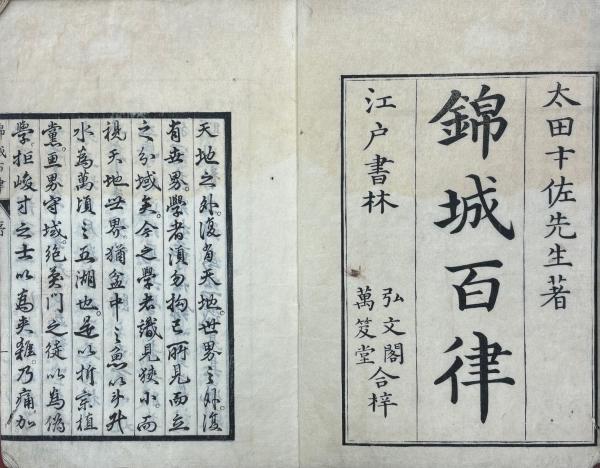 太田才佐先生著
錦城百律
江戸書林
弘文閣
萬笈堂
合梓
天地之外復有天地。世界之外復
有世界。學者須勿拘己所見而立
之分域矣。今之學者識見狹小。而
視天地世界猶盆中之魚以斗升
水為萬頃之五湖也。是以折宗植
黨。畫界守域。絶異門之徒以為偽
學。拒峻才之士以為夾雜。乃痛加
錦城百律
序